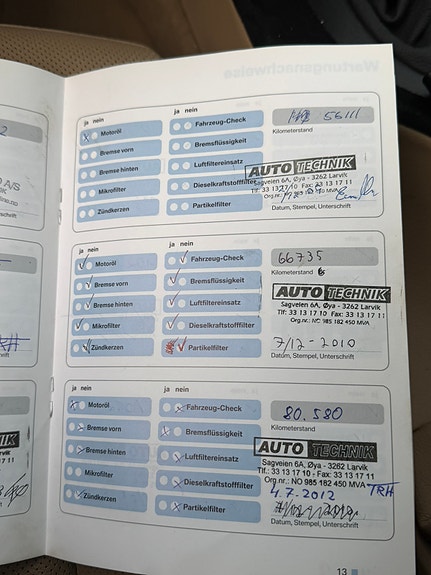 Wartungsnachweise
ja nein
Motoröl
Bremse vorn
Bremse hinten
Mikrofilter
Zündkerzen
ja nein
Fahrzeug-Check
Bremsflüssigkeit
Luftfiltereinsatz
Dieselkraftstofffilter
Partikelfilter
56111
Kilometerstand
AUTO TECHNIK
Sagveien 6A, Øya - 3262 Larvik
Tlf: 33 13 17 10 Fax: 33 13 17 11
Datum, Stempel, Unterschrift
ja nein
Motoröl
Bremse vorn
Bremse hinten
Mikrofilter
Zündkerzen
ja nein
Fahrzeug-Check
Bremsflüssigkeit
Luftfiltereinsatz
Dieselkraftstofffilter
Partikelfilter
66735
Kilometerstand
AUTO TECHNIK
Sagveien 6A, Øya - 3262 Larvik
Tlf: 33 13 17 10 Fax: 33 13 17 11
Org.nr.: NO 985 182 450 MVA
7/12-2010
Datum, Stempel, Unterschrift
ja nein
Motoröl
Bremse vorn
Bremse hinten
Mikrofilter
Zündkerzen
ja nein
Fahrzeug-Check
Bremsflüssigkeit
Luftfiltereinsatz
Dieselkraftstofffilter
Partikelfilter
80.580
Kilometerstand
AUTO TECHNIK
Sagveien 6A, Øya - 3262 Larvik
Tlf: 33 13 17 10 Fax: 33 13 17 11
Org.nr.: NO 985 182 450 MVA
4.7.2012 TRH
Datum, Stempel, Unterschrift
13